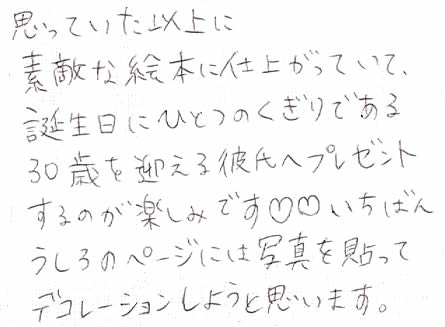 思っていた以上に
素敵な絵本に仕上がっていて、
誕生日にひとつのくぎりである
30歳を迎える彼氏へプレゼント
するのが楽しみです♡♡いちばん
うしろのページには写真を貼って
デコレーションしようと思います。